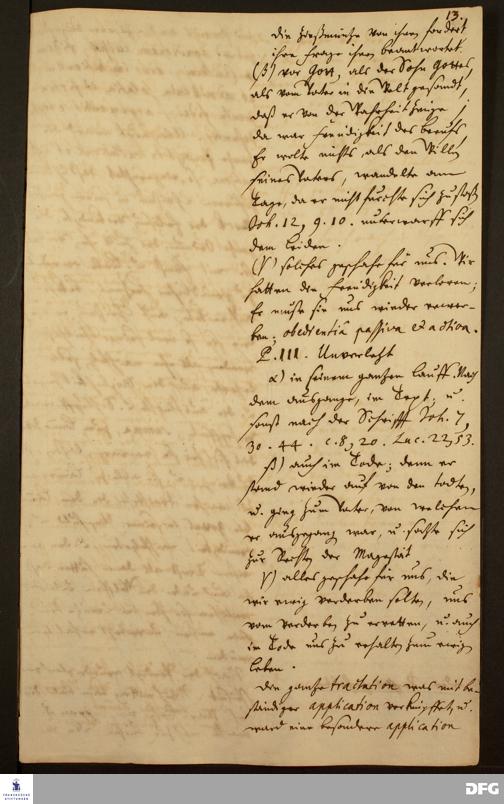 13.
die Zinßmüntze von ihnen fordert,
ihre Frage ihnen beantwortet.
(β) vor Gott, als der Sohn Gottes,
als vom Vater in die Welt gesandt,
daß er von der Wahrheit zeuge,
da war Freudigkeit des berufs
Er wolte nichts, als den Willen
seines Vaters, wandelte am
Tage, da er nicht furchte sich zu stoßen
Joh. 12, 9. 10. unterwarff sich
dem Leiden.
(γ) solches geschahe für uns. Wir
hatten die Freudigkeit verloren;
Er muste sie uns wieder erwer-
ben; obedientia passiva et activa.
P. III. Unverletzt
α) in seinem gantzen Lauff. Nach
dem ausgange, im Text; u.
sonst nach der Schrifft Joh. 7,
30. 44. c. 8, 20. Luc. 22, 53.
β) auch im Tode; denn er
stand wieder auf von den todten,
u. ging zum Vater, von welchem
er ausgegangen war, u. setzte sich
zur Rechten der Majestät
γ) alles geschahe für uns, die
wir ewig verderben solten, uns
vom verderben zu erretten, u. auch
im Tode uns zu erhalten zum ewigen
Leben.
Die gantze tractation war mit be-
ständiger application verknüpffet, u.
ward eine besondere application
DFG